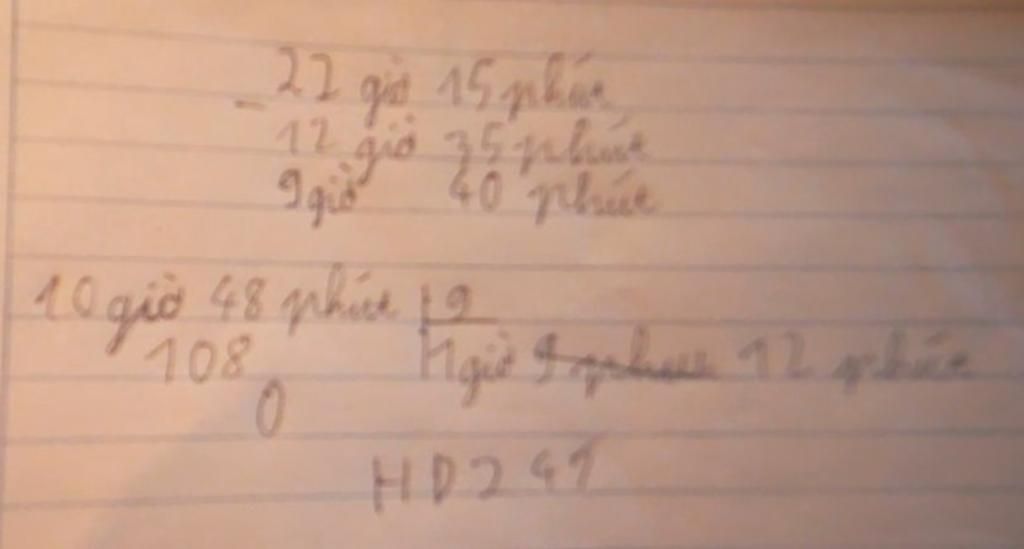 - 22 giờ 15 phút
12 giờ 35 phút
9 giờ 40 phút
10 giờ 48 phút 9
108 1 giờ 9 phút 12 phút
0
HD241